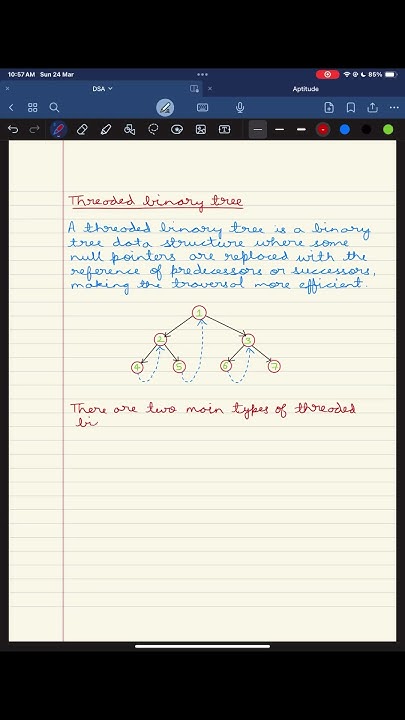 10:57 AM Sun 24 Mar
85%
DSA
Aptitude
Threaded binary tree
A threaded binary tree is a binary
tree data structure where some
null pointers are replaced with the
reference of predecessors or successors,
making the traversal more efficient.
1
2 3
4 5 6 7
There are two main types of threaded
bi